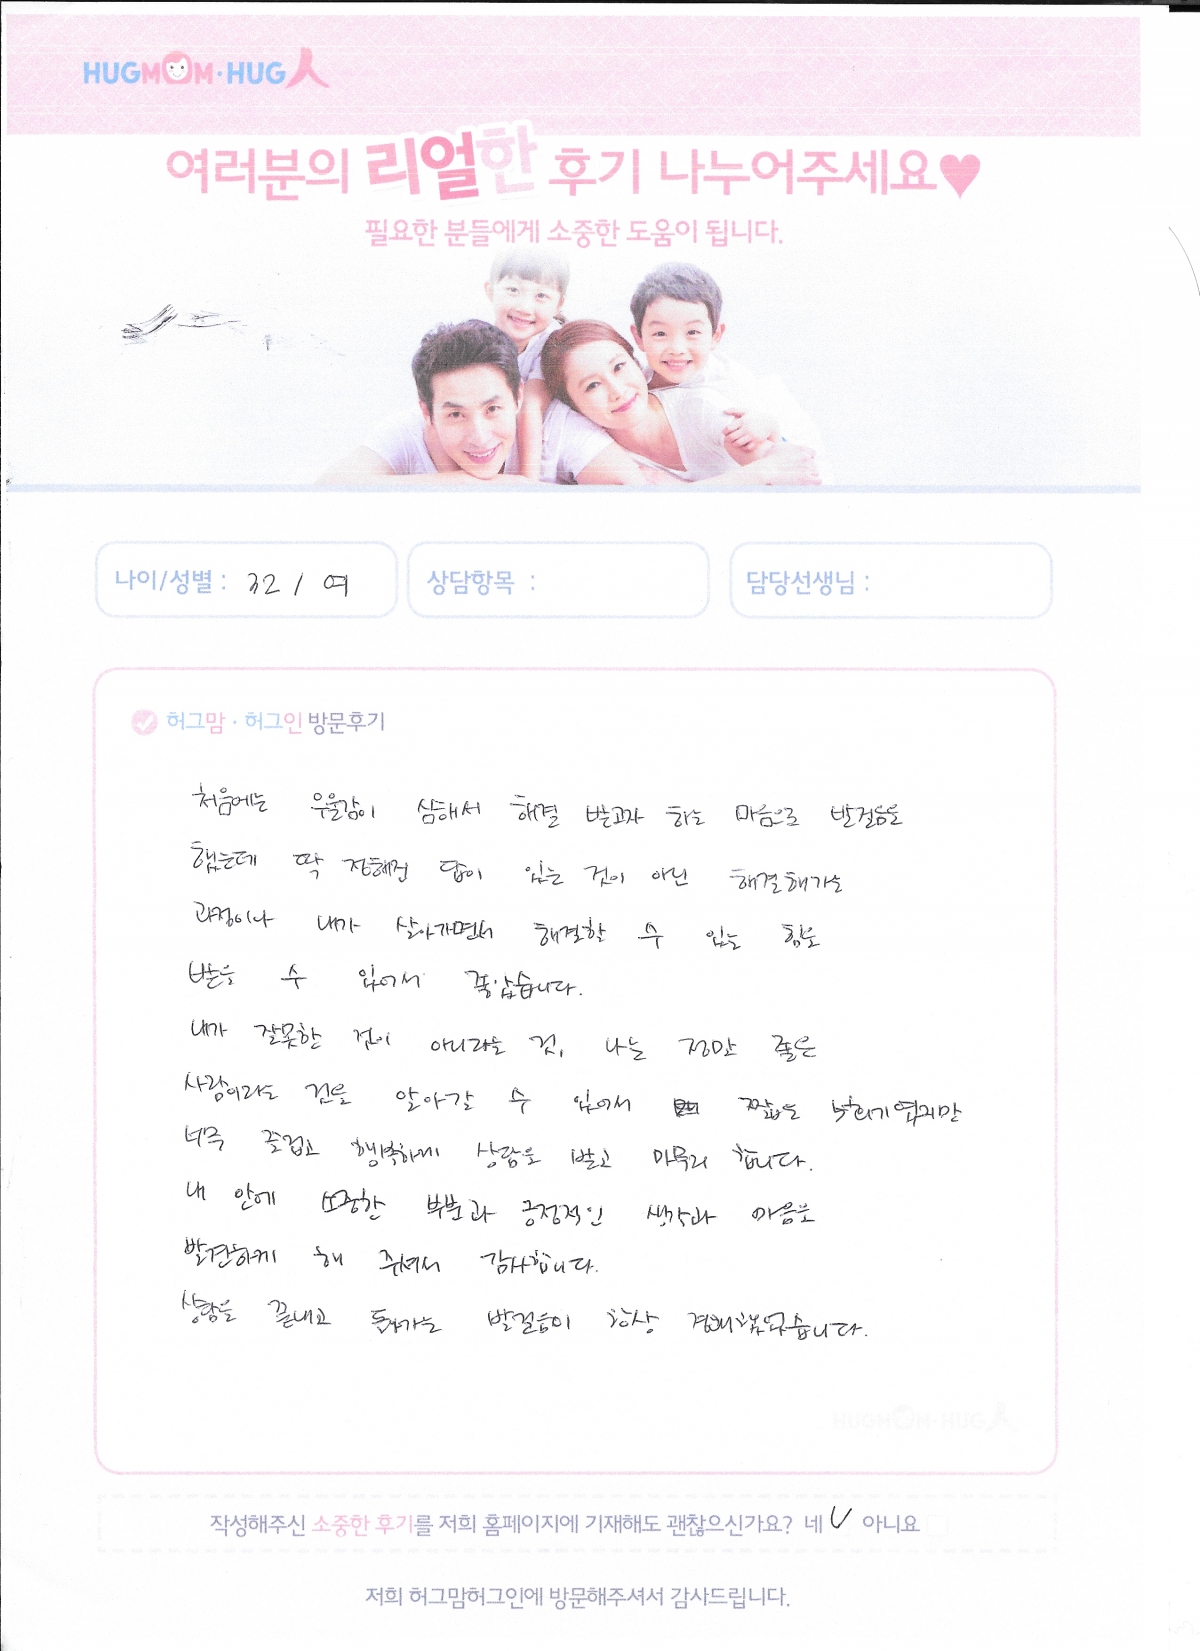 HUGMOM·HUG人
여러분의 리얼한 후기 나누어주세요♥
필요한 분들에게 소중한 도움이 됩니다.
나이/성별 : 32 / 여
상담항목 :
담당선생님 :
허그맘·허그인 방문후기
처음에는 우울감이 심해서 해결 받고자 하는 마음으로 발걸음을
했는데 딱 정해진 답이 있는 것이 아닌 해결해가는
과정이나 내가 살아가면서 해결할 수 있는 힘을
받을 수 있어서 좋았습니다.
내가 잘못한 것이 아니라는 것, 나는 정말 좋은
사람이라는 것을 알아갈 수 있어서 짧은 8회기였지만
너무 즐겁고 행복하게 상담을 받고 마무리 합니다.
내 안에 소중한 부분과 긍정적인 생각과 마음을
발견하게 해 주셔서 감사합니다.
상담을 끝내고 돌아가는 발걸음이 항상 경쾌했습니다.
HUGMOM·HUG人
작성해주신 소중한 후기를 저희 홈페이지에 기재해도 괜찮으신가요? 네 V 아니요 □
저희 허그맘허그인에 방문해주셔서 감사드립니다.